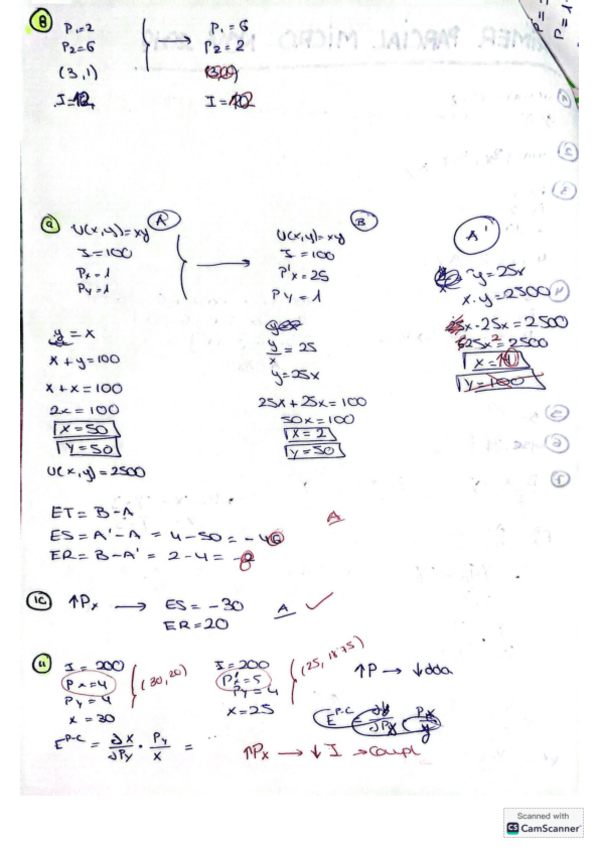 8
P₁=2
P₂=6
(3,1)
I=12
P₁=6
P₂=2
I=12
9
U(x,y)=xy
I=100
Px=1
Py=1
y=x
x+y=100
x+x=100
2x=100
x=50
y=50
U(x,y)=2500
A
B
U(x,y)=xy
I=100
P'x=25
Py=1
y/x=25
y=25x
25x+25x=100
50x=100
x=2
y=50
A'
y=25x
x·y=2500
x·25x=2500
25x²=2500
x=10
y=100
ET=B-A
ES=A'-A=4-50=-46
ER=B-A'=2-4=-2
A
10
↑Px → ES=-30
ER=20
A ✓
11
I=200
Px=4
Py=4
x=30
(30,20)
I=200
P'x=5
Py=4
x=25
(25,18'75)
↑P → ↓dda
E^P-C = ∂y/∂Px · Px/y
E^P-C = ∂x/∂Py · Py/x =
↑Px → ↓I → Compl
Scanned with
CS CamScanner